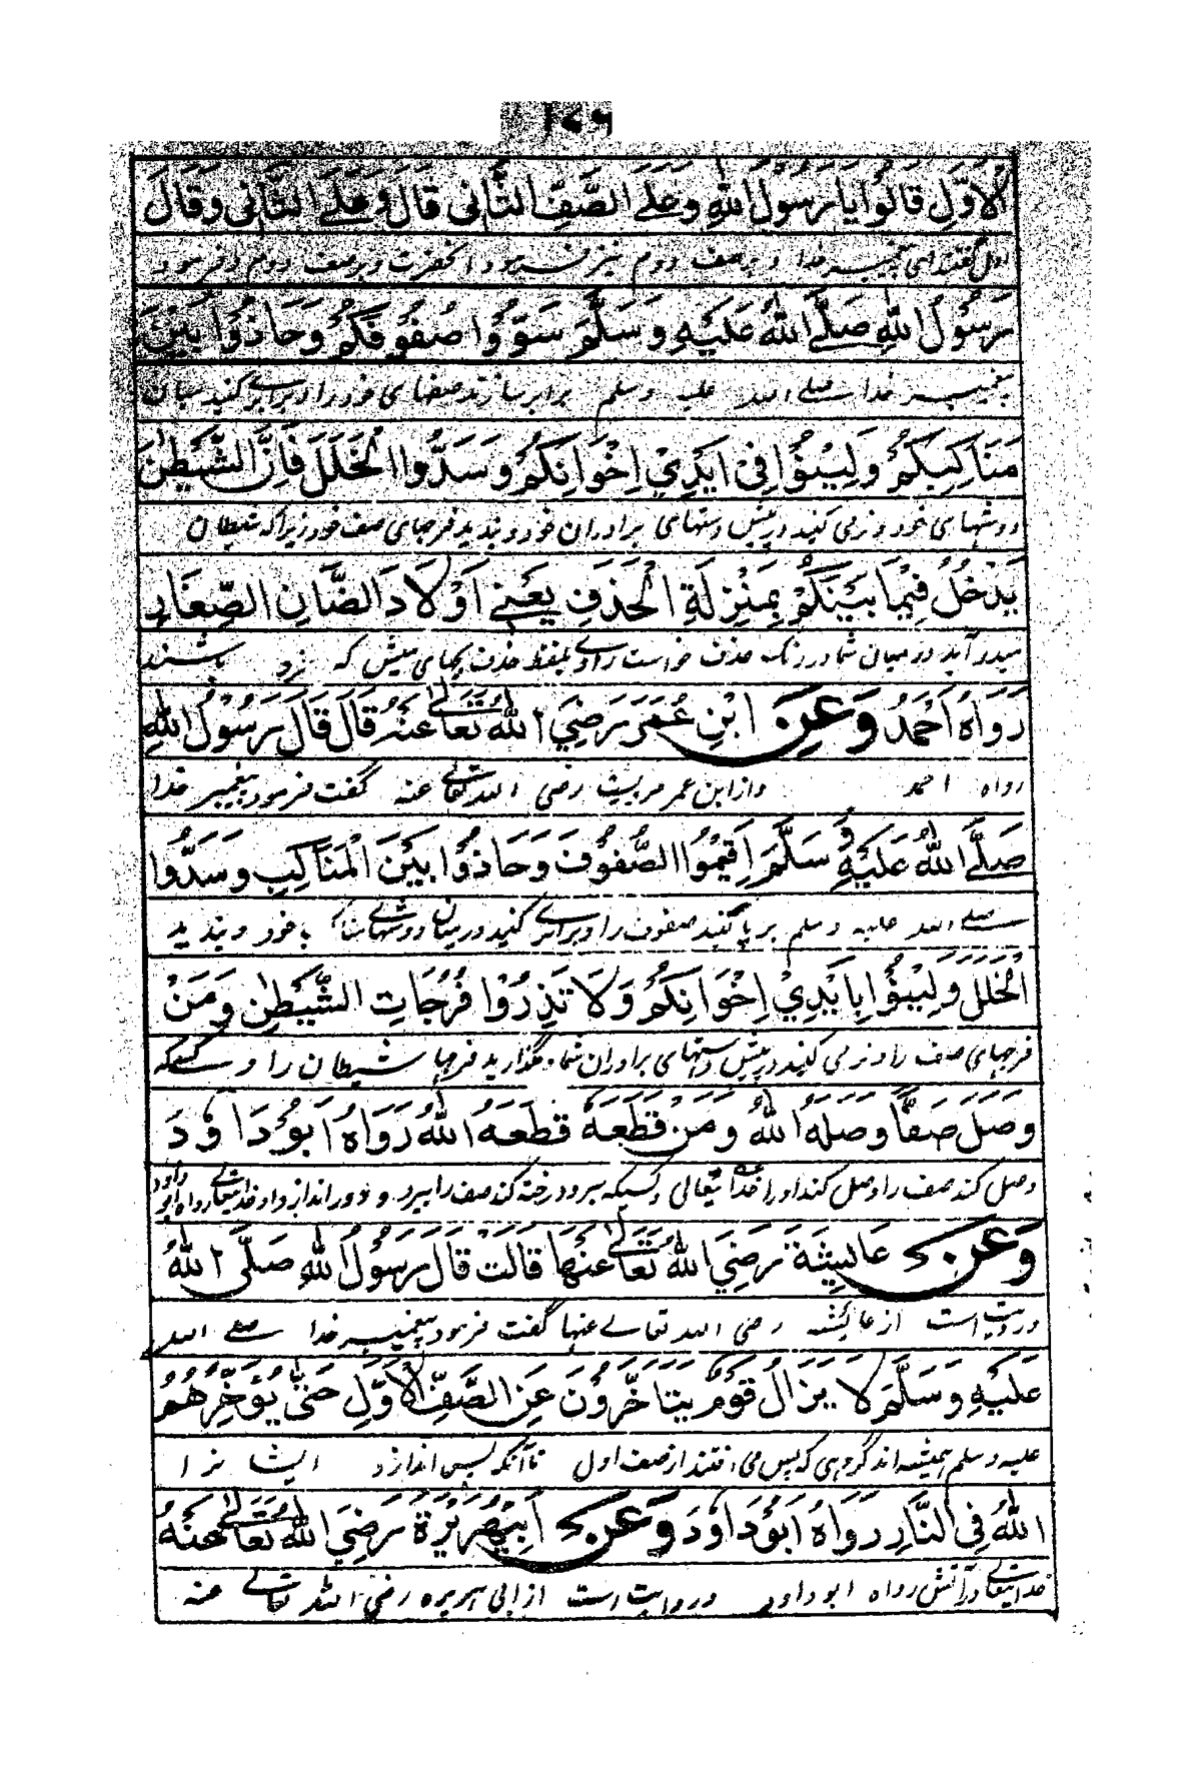 ۱۷۶
الْاَوَّلِ قَالُوْا يَا رَسُوْلَ اللّٰهِ وَعَلَى الصَّفِّ الثَّانِى قَالَ وَعَلَى الثَّانِى وَقَالَ
اول گفتند ای پیغمبر خدا و بر صف دوم نیز فرمود آنحضرت و بر صف دوم و فرمود
رَسُوْلُ اللّٰهِ صَلَّے اللّٰهُ عَلَيْهِ وَسَلَّمَ سَوُّوْا صُفُوْفَكُمْ وَحَاذُوْا بَيْنَ
پیغمبر خدا صلے اللہ علیہ وسلم برابر سازید صفهای خود را و برابر کنید میان
مَنَاكِبِكُمْ وَلِيْنُوْا فِىْ اَيْدِيْ اِخْوَانِكُمْ وَسَدُّوا الْخَلَلَ فَاِنَّ الشَّيْطٰنَ
دوشهای خود و نرمی کنید در پیش دستهای برادران خود و بندید فرجهای صف خود زیرا که شیطان
يَدْخُلُ فِيْمَا بَيْنَكُمْ بِمَنْزِلَةِ الْحَذَفِ يَعْنِے اَوْلَادَ الضَّاْنِ الصِّغَارِ
میدرآید در میان شما در رنگ حذف خواست راوی بلفظ حذف بچهای میش که خرد باشند
رَوَاهُ اَحْمَدُ وَعَنِ ابْنِ عُمَرَ رَضِيَ اللّٰهُ تَعَالٰے عَنْهُ قَالَ قَالَ رَسُوْلُ اللّٰهِ
رواه احمد واز ابن عمر مرویست رضی اللہ تعالے عنه گفت فرمود پیغمبر خدا
صَلَّے اللّٰهُ عَلَيْهِ وَسَلَّمَ اَقِيْمُوا الصُّفُوْفَ وَحَاذُوْا بَيْنَ الْمَنَاكِبِ وَسَدُّوا
صلے اللہ علیہ وسلم برپا کنید صفوف را و برابری کنید درمیان دوشهای با خود و بندید
الْخَلَلَ وَلِيْنُوْا بِاَيْدِيْ اِخْوَانِكُمْ وَلَا تَذَرُوْا فُرُجَاتِ الشَّيْطٰنِ وَمَنْ
فرجهای صف را و نرمی کنید در پیش دستهای برادران شما و مگذارید فرجها شیطان را و کسیکه
وَصَلَ صَفًّا وَصَلَهُ اللّٰهُ وَمَنْ قَطَعَهُ قَطَعَهُ اللّٰهُ رَوَاهُ اَبُوْ دَاوٗدَ
وصل کند صف را وصل کند او را خدا تعالی و کسیکه ببرد و رخنه کند صف را ببرد و دور اندازد او خدا تعالے رواه ابو داود
وَعَنْ عَائِشَةَ رَضِيَ اللّٰهُ تَعَالٰے عَنْهَا قَالَتْ قَالَ رَسُوْلُ اللّٰهِ صَلَّى اللّٰهُ
وروایت است از عائشه رضی اللہ تعالے عنها گفت فرمود پیغمبر خدا صلے اللہ
عَلَيْهِ وَسَلَّمَ لَا يَزَالُ قَوْمٌ يَتَاَخَّرُوْنَ عَنِ الصَّفِّ الْاَوَّلِ حَتّٰى يُؤَخِّرَهُمُ
علیہ وسلم همیشه اند گروهی که پس می افتند از صف اول تا آنکه پس اندازد ایشانرا
اللّٰهُ فِى النَّارِ رَوَاهُ اَبُوْ دَاوٗدَ وَعَنْ اَبِيْ هُرَيْرَةَ رَضِيَ اللّٰهُ تَعَالٰے عَنْهُ
خدا تعالے در آتش رواه ابو داود وروایت است از ابی هریره رضی اللہ تعالے عنه